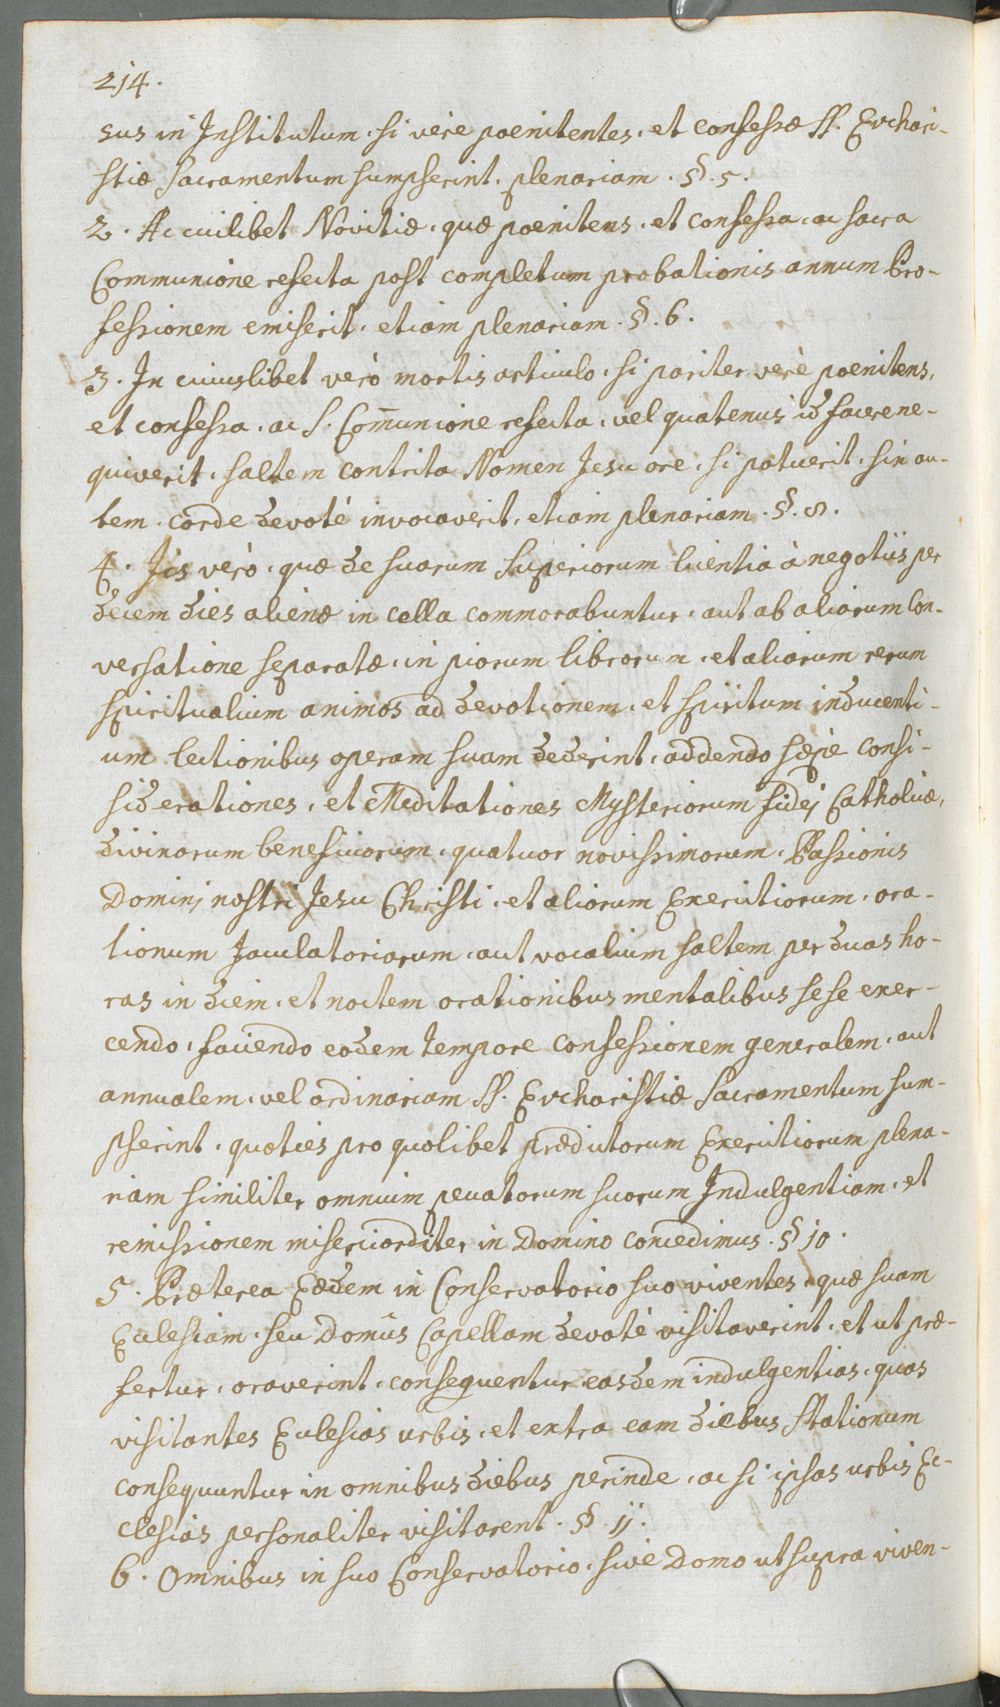 214.
sus in Institutum, si vere poenitentes, et confessæ SS. Euchari-
stiæ Sacramentum sumpserint, plenariam. §. 5.
2. Ac cuilibet Novitiæ, quæ poenitens, et confessa, ac sacra
Communione refecta post completum probationis annum Pro-
fessionem emiserit, etiam plenariam. §. 6.
3. In cuiuslibet verò mortis articulo, si pariter verè poenitens,
et confessa, ac S. Com̄unione refecta, vel quatenus id facere ne-
quiverit, saltem contrita Nomen Jesu ore, si potuerit, sin au-
tem, corde devotè invocaverit, etiam plenariam. §. 8.
4. Jis verò, quæ de suarum Superiorum licentia à negotiis per
decem dies alienæ in cella commorabuntur, aut ab aliorum Con-
versatione separatæ, in piorum librorum, et aliarum rerum
spiritualium animos ad devotionem, et spiritum inducenti-
um lectionibus operam suam dederint, addendo sæpe consi-
siderationes, et Meditationes Mysteriorum fidej Catholicæ,
divinorum beneficiorum, quatuor novissimorum, Passionis
Dominj nostri Jesu Christi, et aliorum Exercitiorum, ora-
tionum Jaculatoriarum, aut vocalium saltem per duas ho-
ras in diem, et noctem orationibus mentalibus sese exer-
cendo, faciendo eodem tempore confessionem generalem, aut
annualem, vel ordinariam SS. Eucharistiæ Sacramentum sum-
pserint, quoties pro quolibet prædictorum Exercitiorum plena-
riam similiter omnium peccatorum suorum Indulgentiam, et
remissionem misericorditer in Domino concedimus. §. 10.
5. Præterea Eædem in Conservatorio suo viventes, quæ suam
Ecclesiam, seu Domûs Capellam devotè visitaverint, et ut præ-
fertur, oraverint, consequentur easdem indulgentias, quas
visitantes Ecclesias urbis, et extra eam diebus Stationum
consequuntur in omnibus diebus perinde, ac si ipsas urbis Ec-
clesias personaliter visitarent. §. 11.
6. Omnibus in suo Conservatorio, sive Domo ut supra viven-